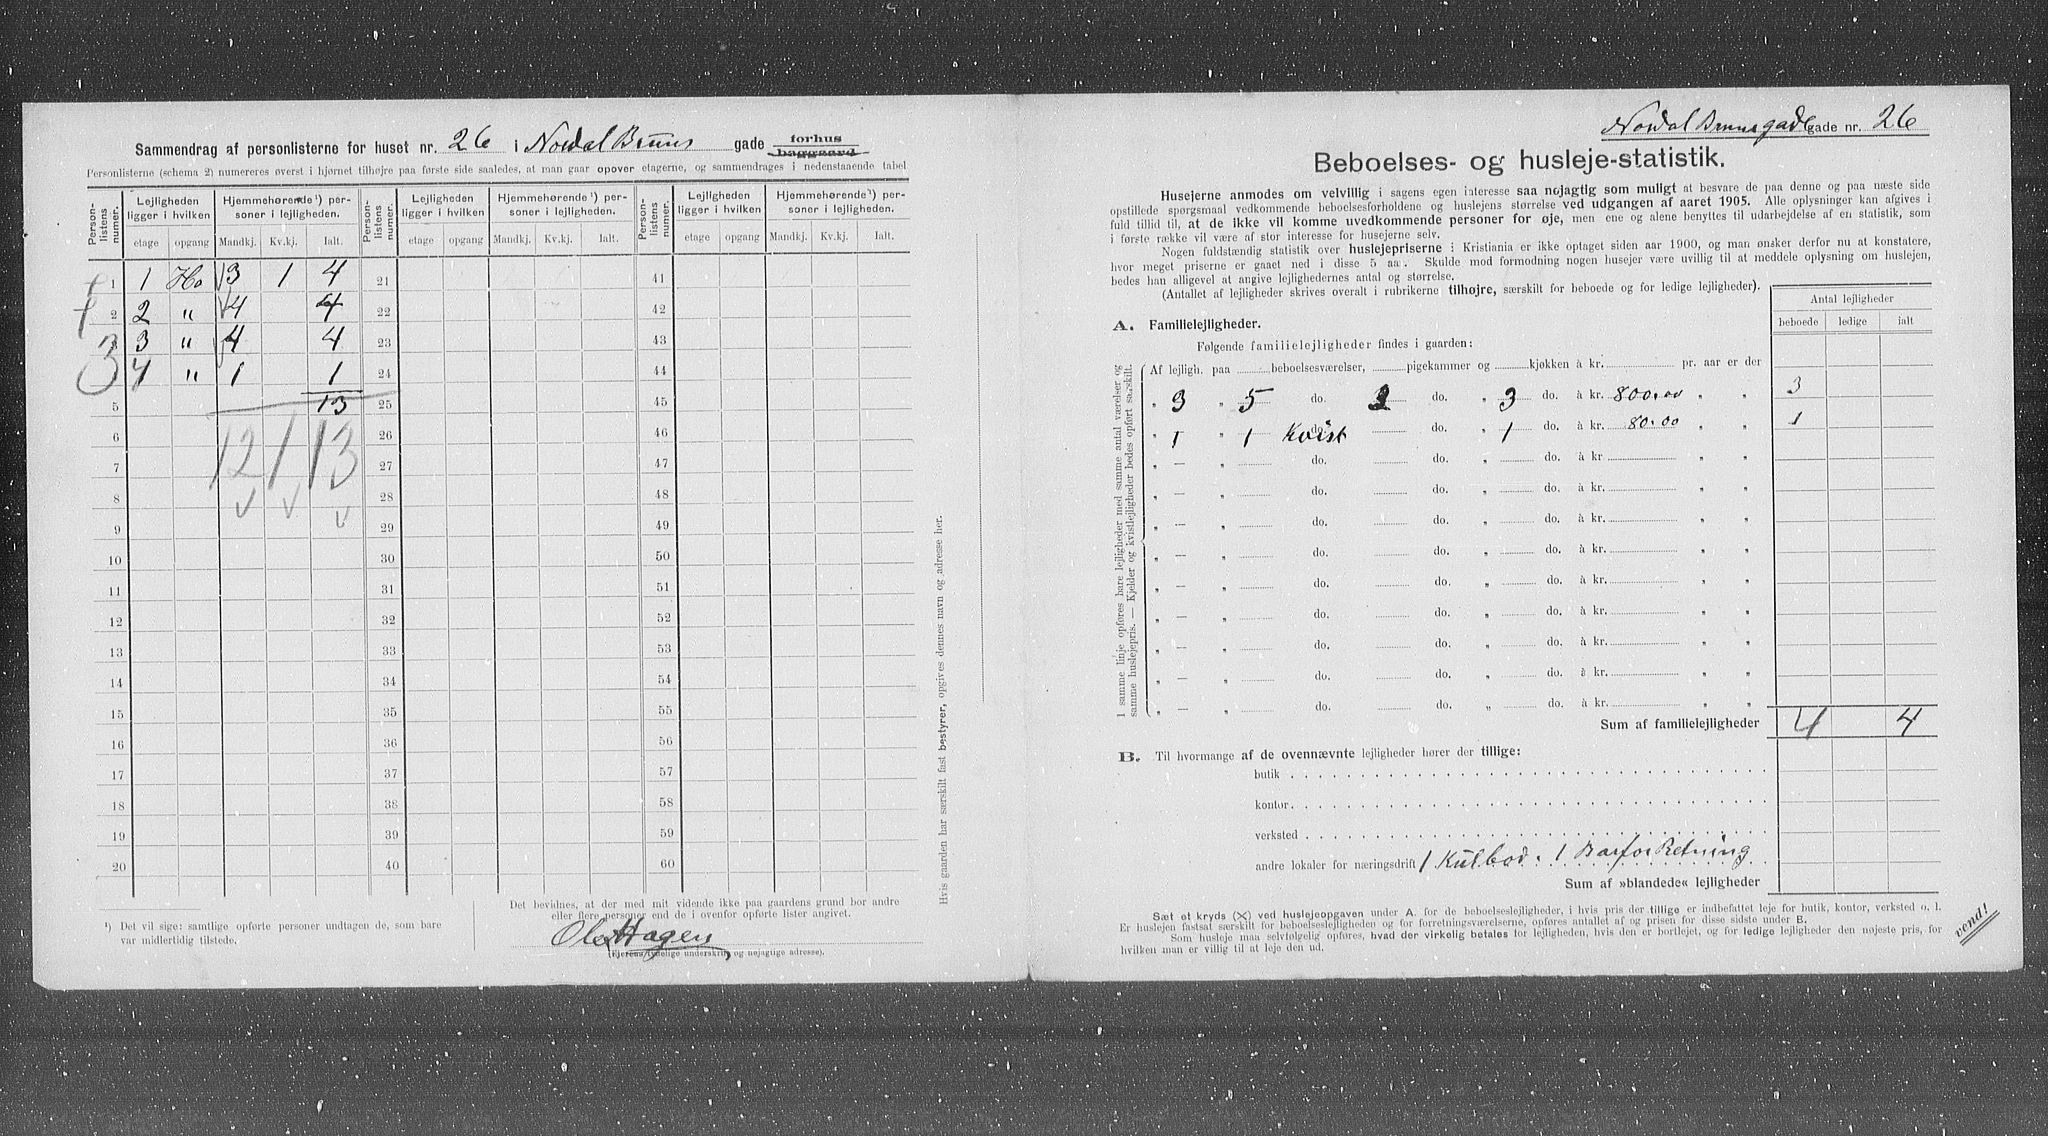 Sammendrag af personlisterne for huset nr. 26 i Nordal Bruns gade forhus
baggaard
Personlisterne (schema 2) numereres øverst i hjørnet tilhøjre paa første side saaledes, at man gaar opover etagerne, og sammendrages i nedenstaaende tabel
Person-listens nummer. Lejligheden ligger i hvilken Hjemmehørende ¹) personer i lejligheden. Person-listens nummer. Lejligheden ligger i hvilken Hjemmehørende ¹) personer i lejligheden. Person-listens nummer. Lejligheden ligger i hvilken Hjemmehørende ¹) personer i lejligheden.
etage opgang Mandkj. Kv.kj. Ialt. etage opgang Mandkj. Kv.kj. Ialt. etage opgang Mandkj. Kv.kj. Ialt.
1 1 Ho 3 1 4 21 41
2 2 " 4 4 22 42
3 3 " 4 4 23 43
4 " 1 1 24 44
5 13 25 45
6 12 1 13 26 46
7 27 47
8 28 48
9 29 49
10 30 50
11 31 51
12 32 52
13 33 53
14 34 54
15 35 55
16 36 56
17 37 57
18 38 58
19 39 59
20 40 60
¹) Det vil sige: samtlige opførte personer undtagen de, som bare
var midlertidig tilstede.
Det bevidnes, at der med mit vidende ikke paa gaardens grund bor andre
eller flere personer end de i ovenfor opførte lister angivet.
Ole Hagen
(Ejerens tydelige underskrift og nøjagtige adresse).
Hvis gaarden har særskilt fast bestyrer, opgives dennes navn og adresse her.
Nordal Brunsgade gade nr. 26
Beboelses- og husleje-statistik.
Husejerne anmodes om velvillig i sagens egen interesse saa nøjagtig som muligt at besvare de paa denne og paa næste side
opstillede spørgsmaal vedkommende beboelsesforholdene og huslejens størrelse ved udgangen af aaret 1905. Alle oplysninger kan afgives i
fuld tillid til, at de ikke vil komme uvedkommende personer for øje, men ene og alene benyttes til udarbejdelse af en statistik, som
i første række vil være af stor interesse for husejerne selv.
Nogen fuldstændig statistik over huslejepriserne i Kristiania er ikke optaget siden aar 1900, og man ønsker derfor nu at konstatere,
hvor meget priserne er gaaet ned i disse 5 aar. Skulde mod formodning nogen husejer være uvillig til at meddele oplysning om huslejen,
bedes han alligevel at angive lejlighedernes antal og størrelse.
(Antallet af lejligheder skrives overalt i rubrikerne tilhøjre, særskilt for beboede og for ledige lejligheder).
Antal lejligheder
beboede ledige ialt
A. Familielejligheder.
Følgende familielejligheder findes i gaarden:
Af lejligh. paa beboelsesværelser, pigekammer og kjøkken à kr. pr. aar er der
" 3 " 5 do. do. " 3 do. à kr. 800.00 " " 3
" 1 " 1 Kvist do. do. " 1 do. à kr. 80.00 " " 1
" — " do. do. " do. à kr. " "
" — " do. do. " do. à kr. " "
" — " do. do. " do. à kr. " "
" — " do. do. " do. à kr. " "
" — " do. do. " do. à kr. " "
" — " do. do. " do. à kr. " "
" — " do. do. " do. à kr. " "
" — " do. do. " do. à kr. " "
" — " do. do. " do. à kr. " "
I samme linje opføres bare lejligheder med samme antal værelser og
samme huslejepris. — Kjelder og kvistlejligheder bedes opført særskilt.
Sum af familielejligheder 4 4
B. Til hvormange af de ovennævnte lejligheder hører der tillige:
butik
kontor
verksted
andre lokaler for næringsdrift 1 Kulbod. 1 Barforretning
Sum af »blandede« lejligheder
Sæt et kryds (×) ved huslejeopgaven under A. for de beboelseslejligheder, i hvis pris der tillige er indbefattet leje for butik, kontor, verksted o. l.
Er huslejen fastsat særskilt for beboelseslejligheden og for forretningsværelserne, opføres antallet af og prisen for disse sidste under B.
Som husleje maa selvfølgelig opføres, hvad der virkelig betales for lejligheden, hvis den er bortlejet, og for ledige lejligheder den nøjeste pris, for
hvilken man er villig til at leje den ud.
vend!